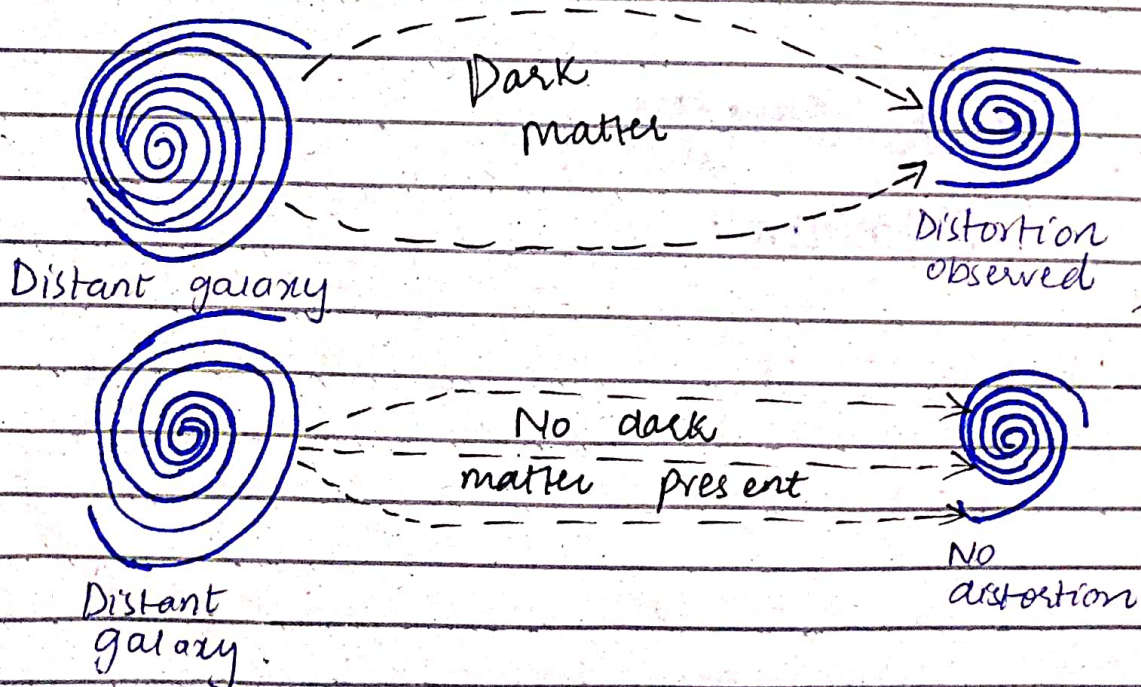 Dark
matter
Distortion
observed
Distant galaxy
No dark
matter present
No
distortion
Distant
galaxy.